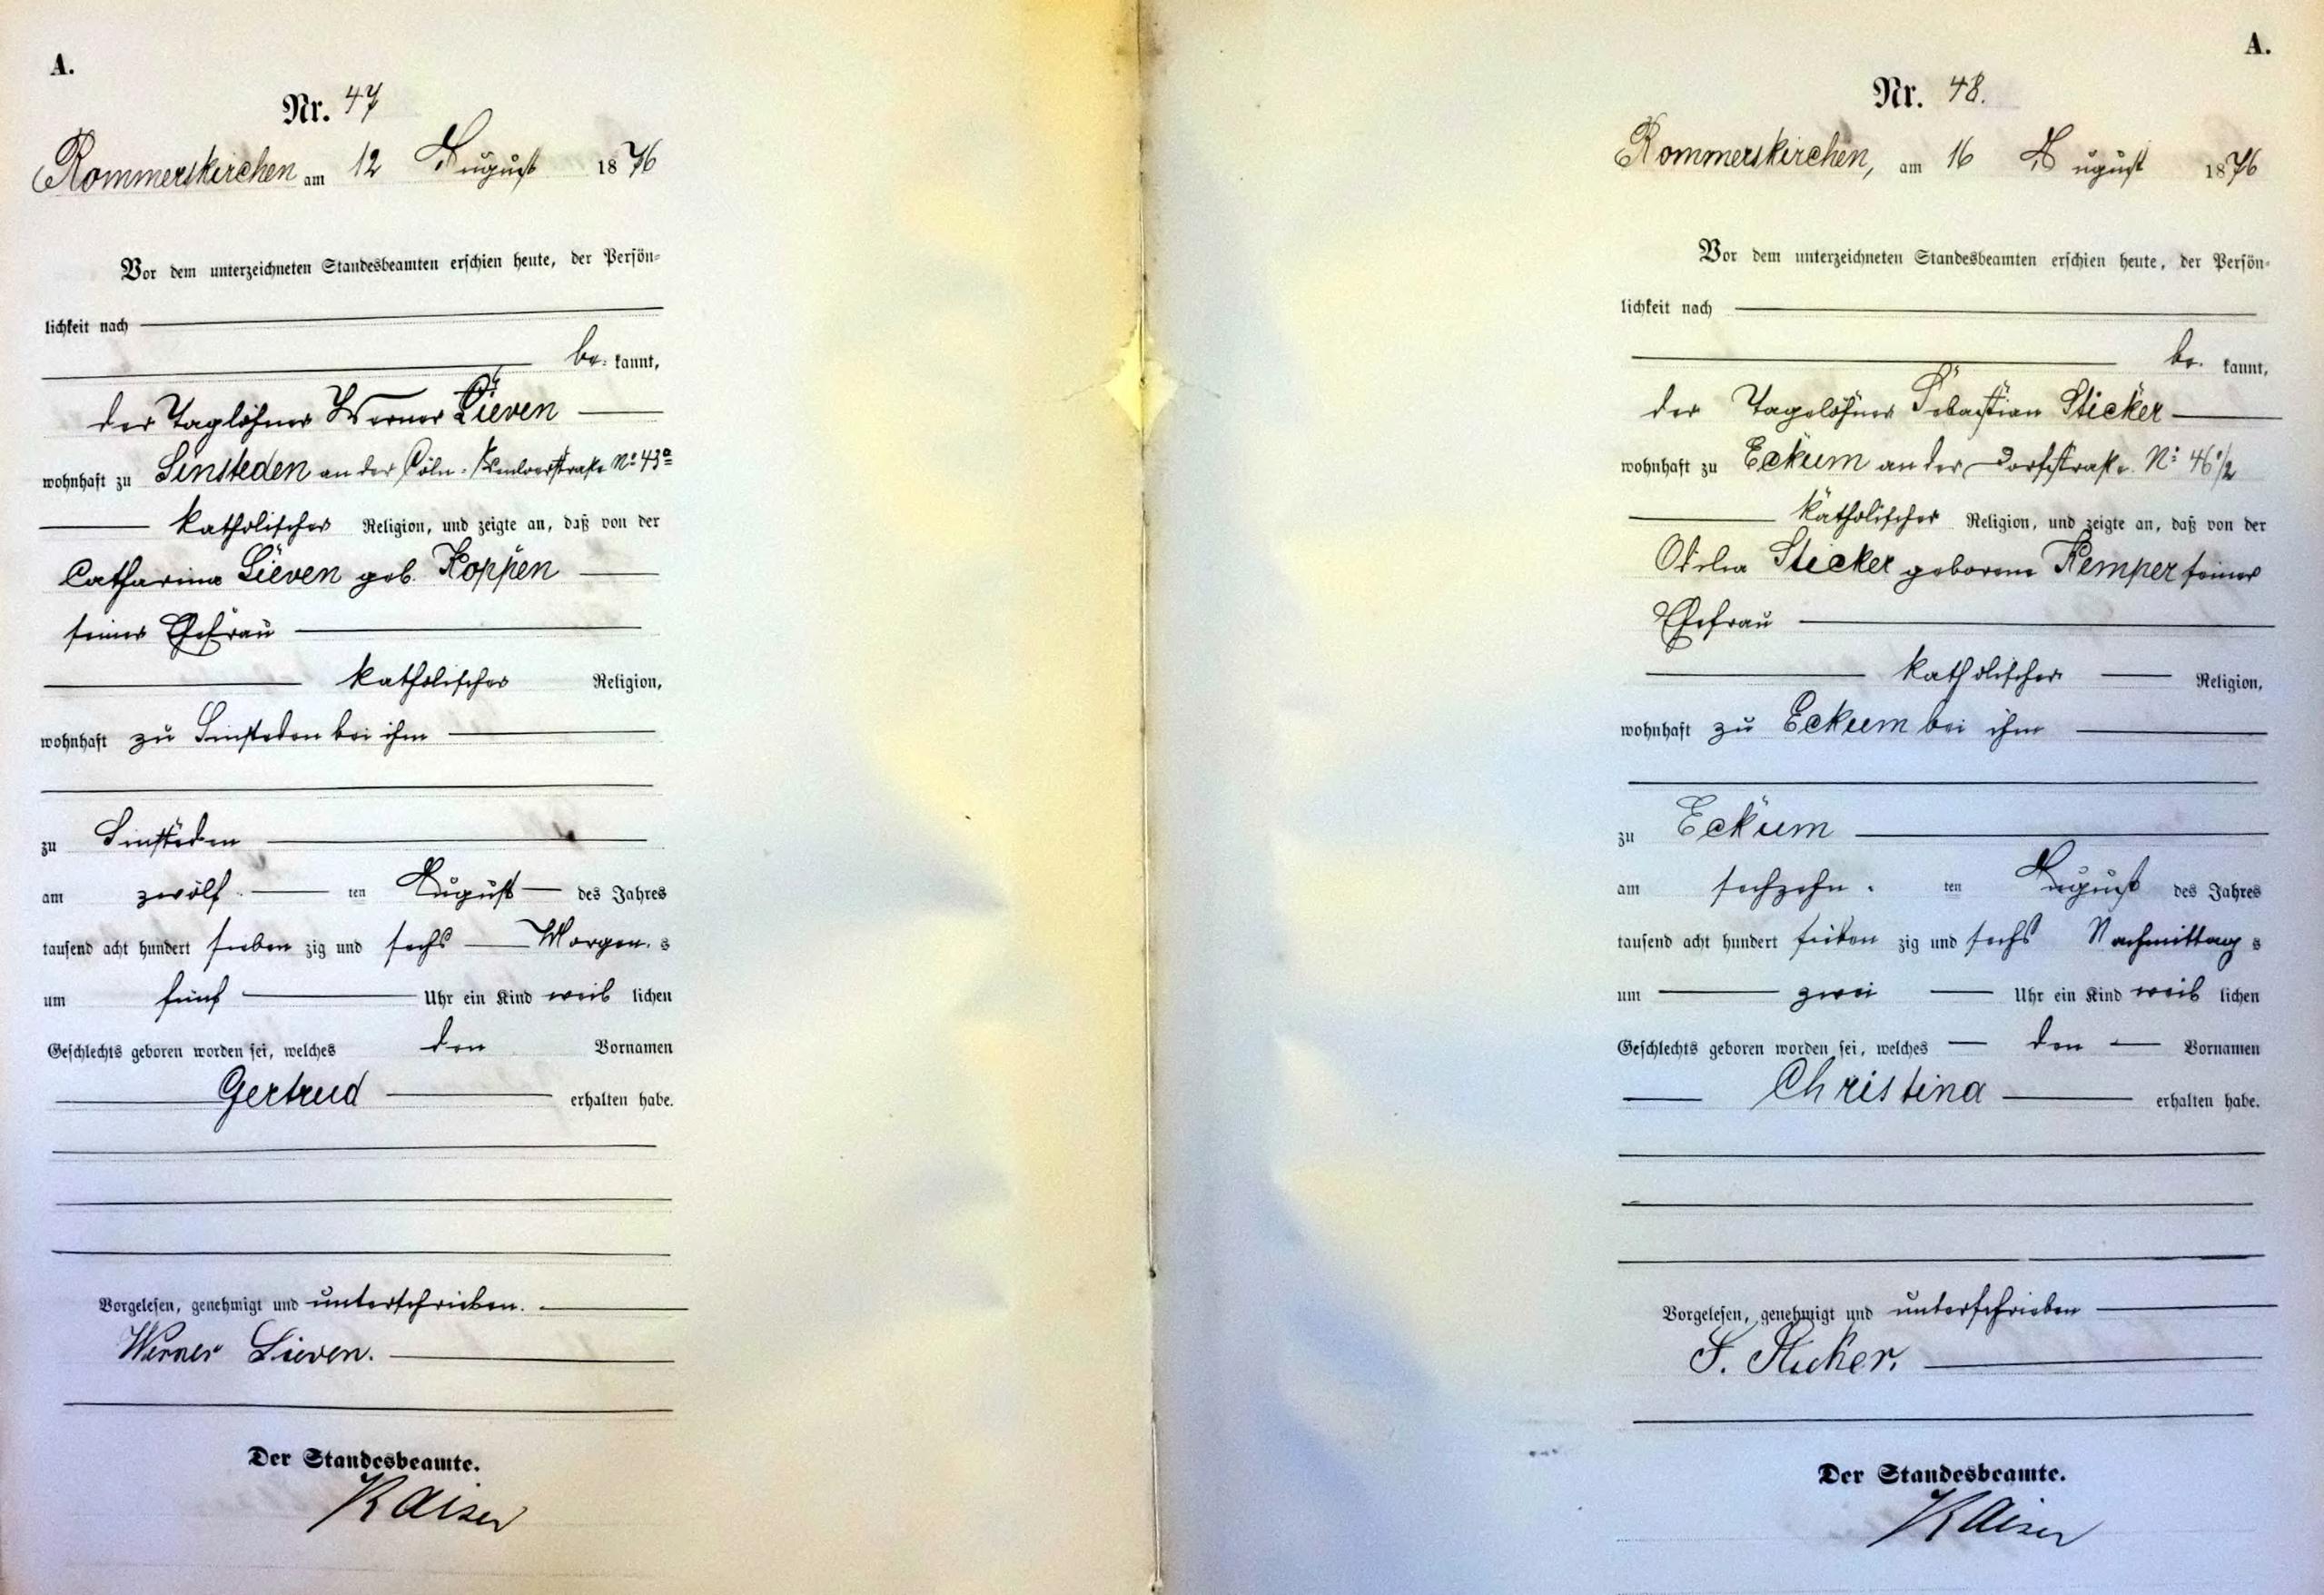 A.
Nr. 47
Rommerskirchen am 12 August 1876
Vor dem unterzeichneten Standesbeamten erschien heute, der Persön-
lichkeit nach
be- kannt,
der Taglöhner Werner Lieven
wohnhaft zu Sinsteden an der Cöln- straße No 43a
katholischer Religion, und zeigte an, daß von der
Catharina Lieven geb. Koppen
seiner Ehefrau
katholischer Religion,
wohnhaft zu Sinsteden bei ihm
zu Sinsteden
am zwölf ten August des Jahres
tausend acht hundert sieben zig und sechs Morgen s
um fünf Uhr ein Kind weib lichen
Geschlechts geboren worden sei, welches den Vornamen
Gertrud erhalten habe.
Vorgelesen, genehmigt und unterschrieben.
Werner Lieven.
Der Standesbeamte.
Kaiser
A.
Nr. 48.
Rommerskirchen, am 16 August 1876
Vor dem unterzeichneten Standesbeamten erschien heute, der Persön-
lichkeit nach
be- kannt,
der Tagelöhner Sebastian Sticker
wohnhaft zu Eckum an der Dorfstraße No 46 1/2
katholischer Religion, und zeigte an, daß von der
Odilia Sticker geborene Kemper seiner
Ehefrau
katholischer Religion,
wohnhaft zu Eckum bei ihm
zu Eckum
am sechzehn ten August des Jahres
tausend acht hundert sieben zig und sechs Nachmittag s
um zwei Uhr ein Kind weib lichen
Geschlechts geboren worden sei, welches den Vornamen
Christina erhalten habe.
Vorgelesen, genehmigt und unterschrieben
S. Sticker.
Der Standesbeamte.
Kaiser